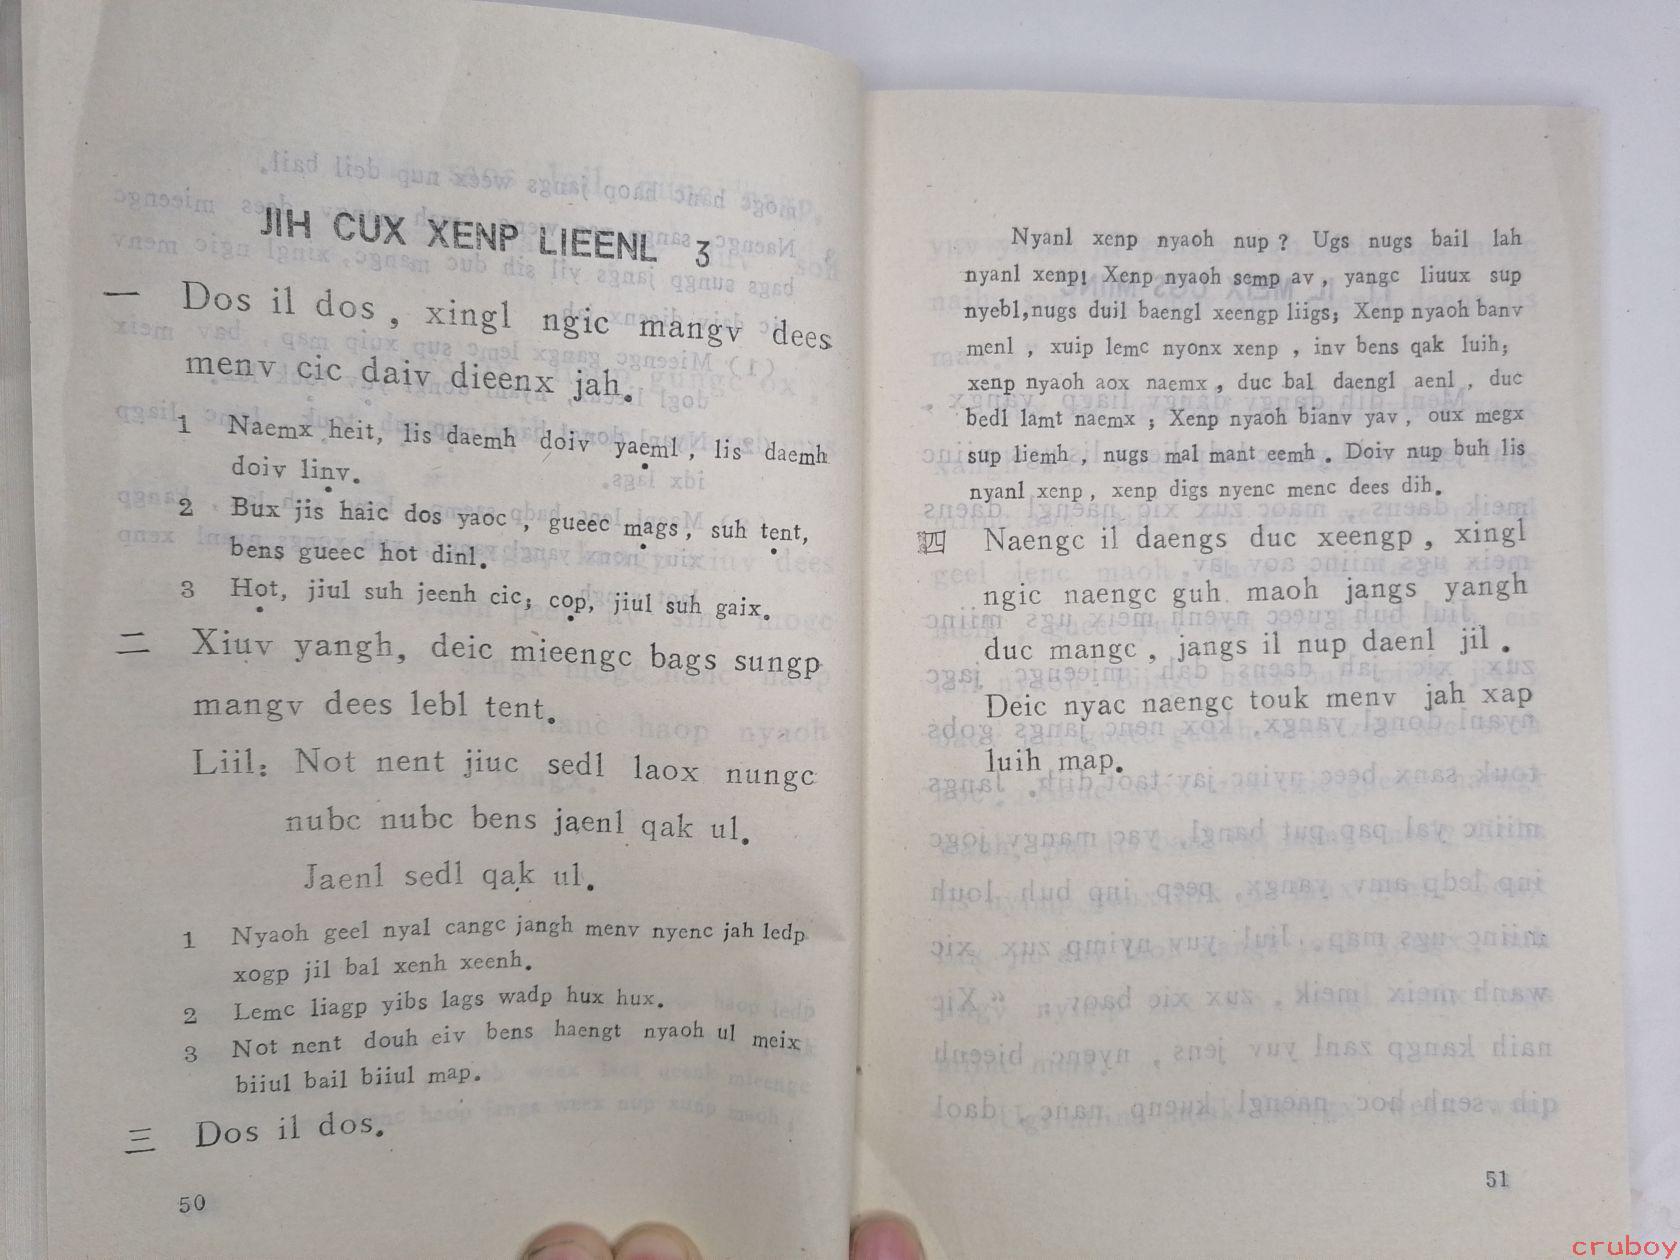 JIH CUX XENP LIEENL 3
一 Dos il dos, xingl ngic mangv dees
menv cic daiv dieenx jah.
1 Naemx heit, lis daemh doiv yaeml, lis daemh
doiv linv.
2 Bux jis haic dos yaoc, gueec mags, suh tent,
bens gueec hot dinl.
3 Hot, jiul suh jeenh cic; cop, jiul suh gaix.
二 Xiuv yangh, deic mieengc bags sungp
mangv dees lebl tent.
Liil: Not nent jiuc sedl laox nungc
nubc nubc bens jaenl qak ul.
Jaenl sedl qak ul.
1 Nyaoh geel nyal cangc jangh menv nyenc jah ledp
xogp jil bal xenh xeenh.
2 Lemc liagp yibs lags wadp hux hux.
3 Not nent douh eiv bens haengt nyaoh ul meix
biiul bail biiul map.
三 Dos il dos.
50
Nyanl xenp nyaoh nup? Ugs nugs bail lah
nyanl xenp! Xenp nyaoh semp av, yangc liuux sup
nyebl, nugs duil baengl xeengp liigs; Xenp nyaoh banv
menl, xuip lemc nyonx xenp, inv bens qak luih;
xenp nyaoh aox naemx, duc bal daengl aenl, duc
bedl lamt naemx; Xenp nyaoh bianv yav, oux megx
sup liemh, nugs mal mant eemh. Doiv nup buh lis
nyanl xenp, xenp digs nyenc menc dees dih.
四 Naengc il daengs duc xeengp, xingl
ngic naengc guh maoh jangs yangh
duc mangc, jangs il nup daenl jil.
Deic nyac naengc touk menv jah xap
luih map.
51
cruboy